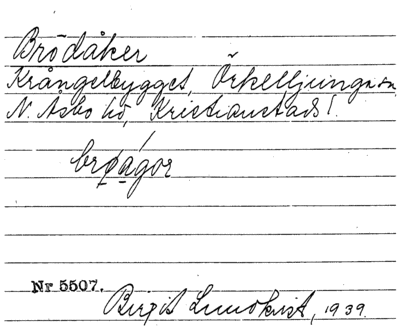 Brödåker
Krångelbygget, Örkelljunga sn,
N. Åsbo hd, Kristianstads l.
Nr 5507.
Birgit Lundkvist, 1939.